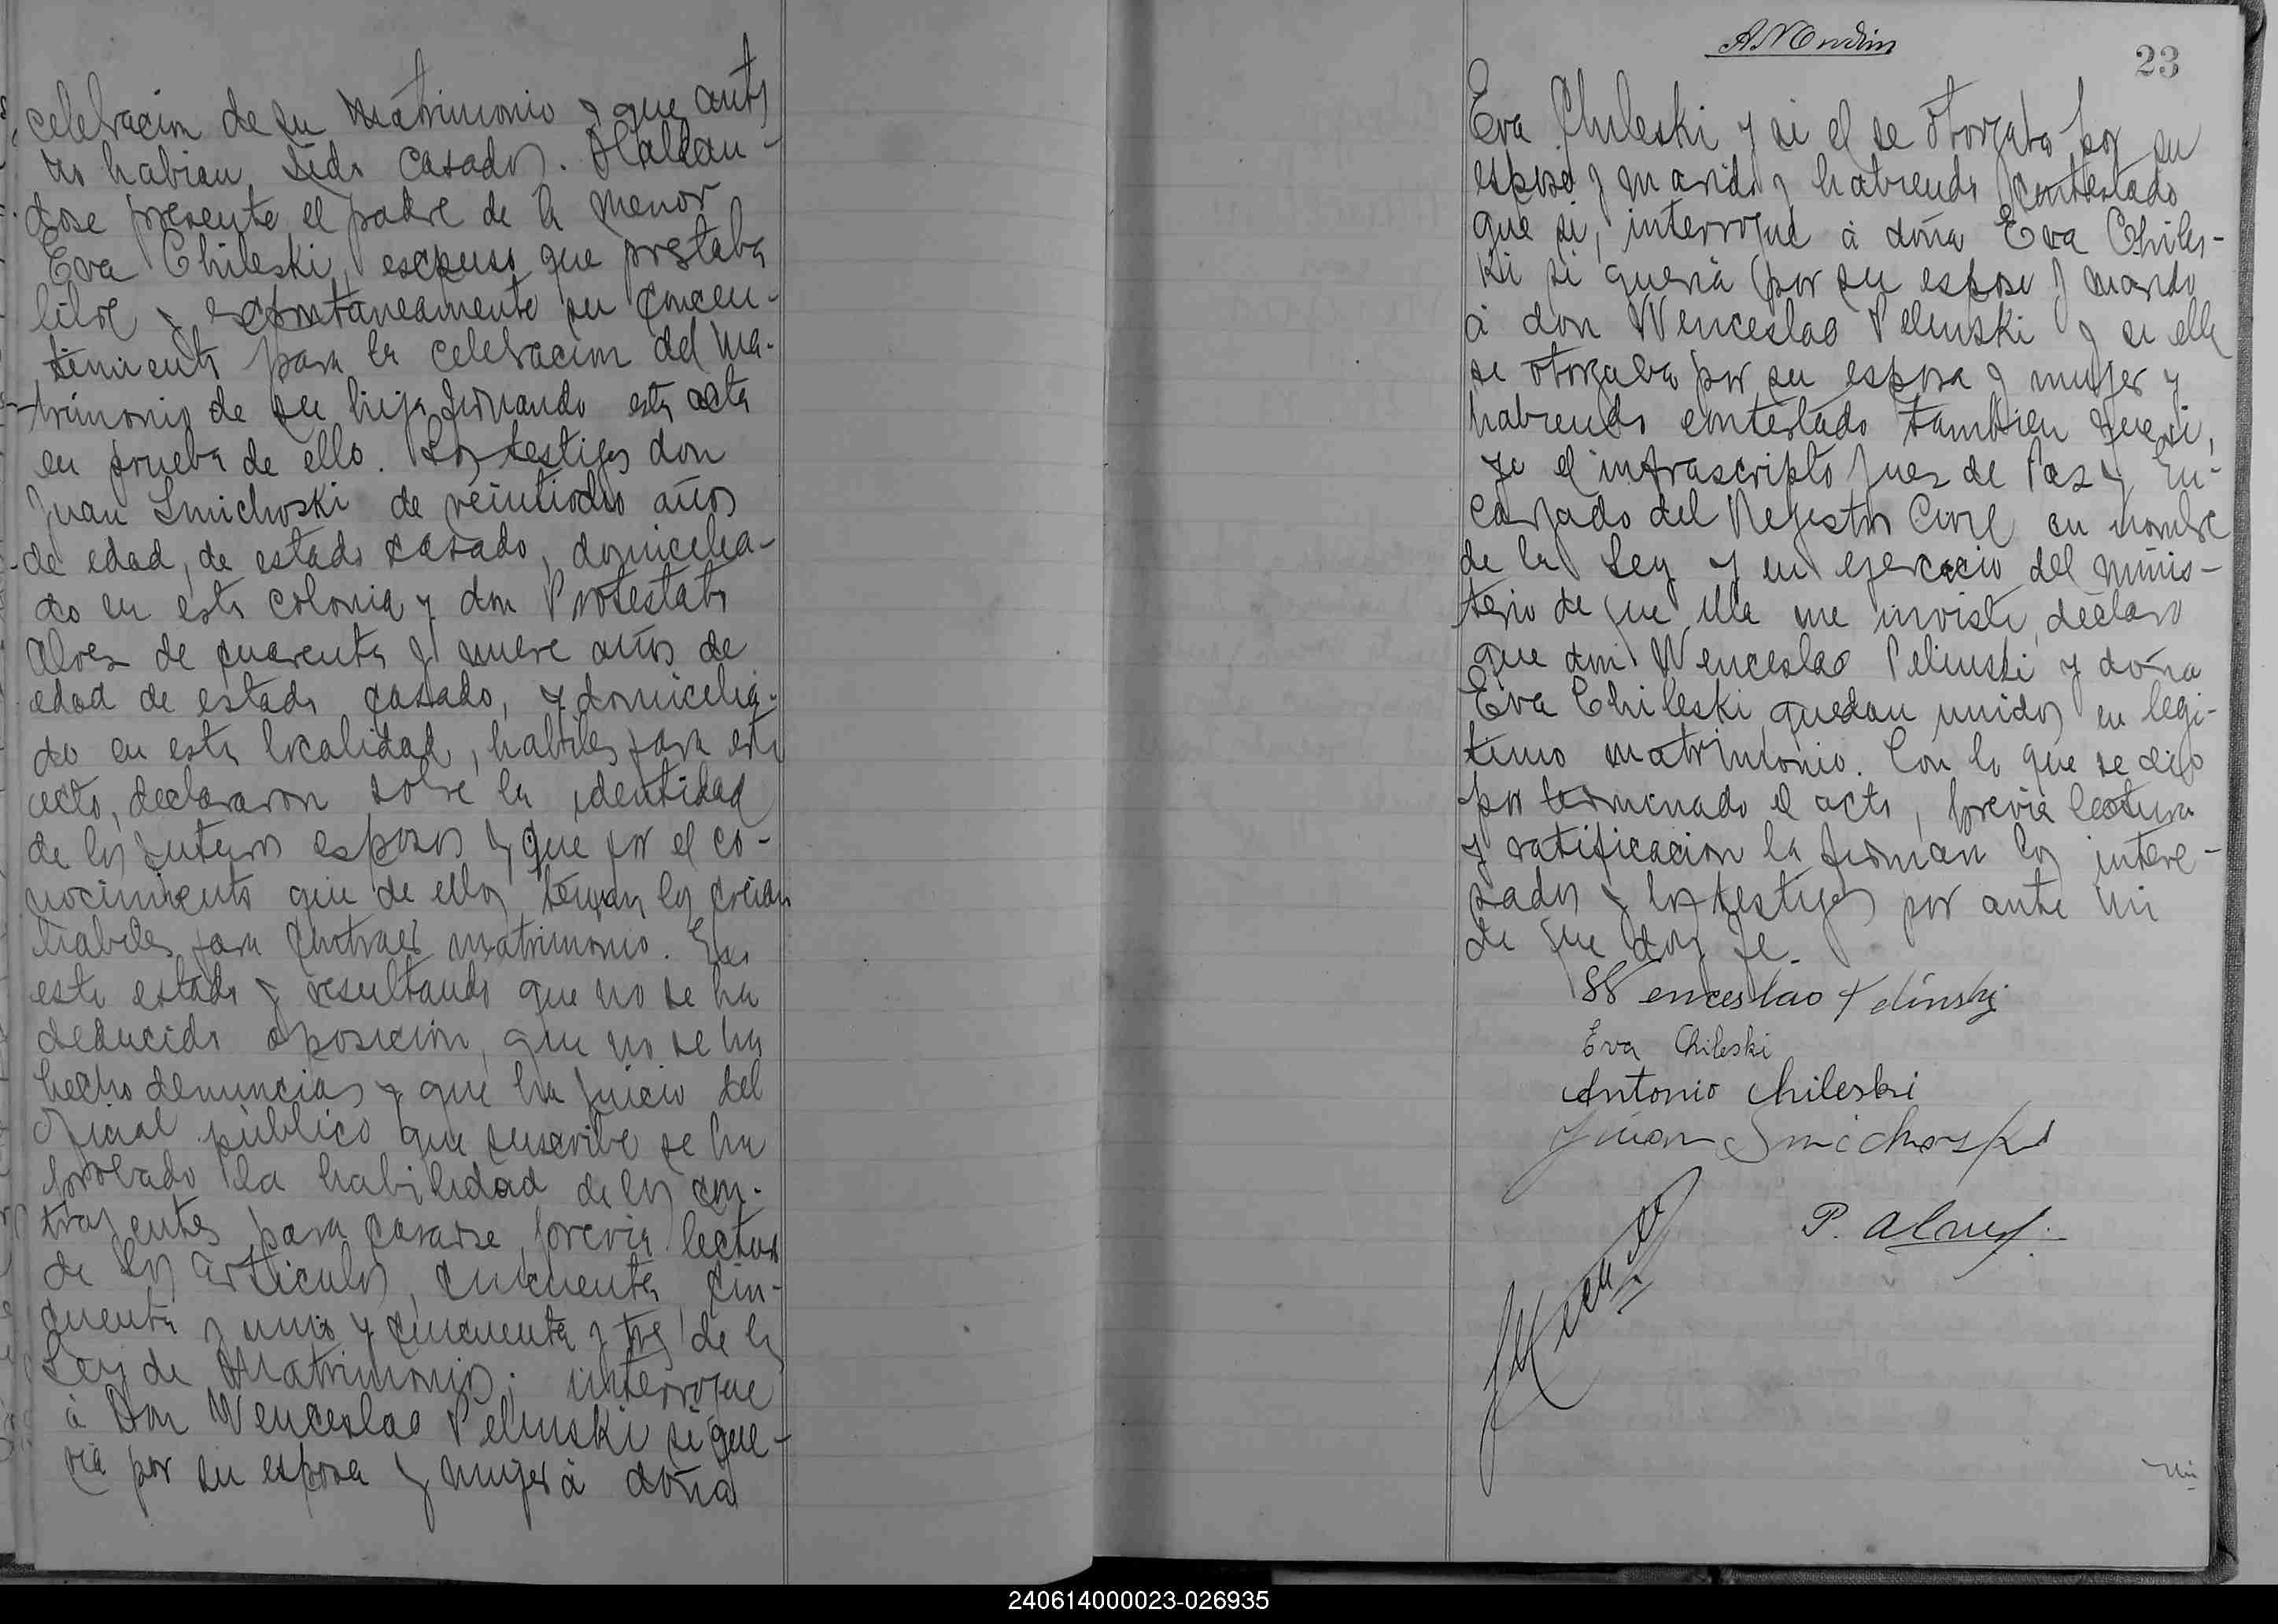 celebracion de su matrimonio y que antes
no habian sido casados. Hallan-
dose presente el padre de la menor
Eva Chileski, escpuso que prestaba
libre y espontaneamente su concen-
timiento para la celebracion del ma-
trimonio de su hija firmando esta acta
en prueba de ello. Los testigos don
Juan Smichoski de veintiocho años
de edad, de estado casado, domicilia-
do en esta colonia y don Protestato
Alves de cuarenta y nueve años de
edad de estado casado, y domicilia-
do en esta localidad, habiles para este
acto, declararon sobre la identidad
de los futuros esposos y que por el co-
nocimiento que de ellos tenian los creian
habiles para contraer matrimonio. En
este estado y resultando que no se ha
deducido oposicion, que no se ha
hecho denuncias y que ha juicio del
oficial público que suscribe se ha
probado la habilidad de los con-
trayentes para casarse, previa lectura
de los articulos, cincuenta, cin-
cuenta y uno y cincuenta y tres de la
Ley de Matrimonio; interrogue
á Don Wenceslao Pelinski si que-
ria por su esposa y mujer á doña
A Mondin
23
Eva Chileski y si el se otorgaba por su
esposo y marido y habiendo contestado
que si, interrogué á doña Eva Chiles-
ki si queria por su esposo y marido
á don Wenceslao Pelinski y si ella
se otorgaba por su esposa y mujer y
habiendo contestado tambien que si,
yo el infrascripto Juez de Paz y En-
cargado del Registro Civil en nombre
de la Ley y en ejercicio del minis-
terio de que ella me inviste, declaro
que don Wenceslao Pelinski y doña
Eva Chileski quedan unidos en legi-
timo matrimonio. Con lo que se dijo
por terminado el acto, previa lectura
y ratificacion la firman los intere-
sados y los testigos por ante mi
de que doy fe.
Wenceslao Pelinski
Eva Chileski
Antonio Chileski
Juan Smichoski
P. Alves
240614000023-026935